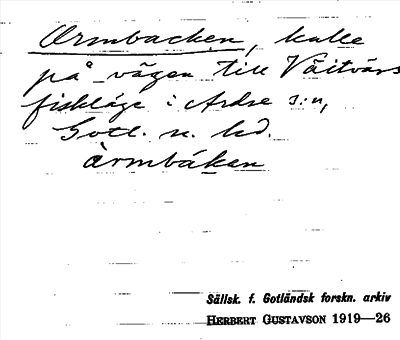 Ormbacken, kulle
på vägen till Vitvärs
fiskläge i Ardre s:n,
Gotl. n. hd.
òrmbákεn
Sällsk. f. Gotländsk forskn. arkiv
HERBERT GUSTAVSON 1919—26